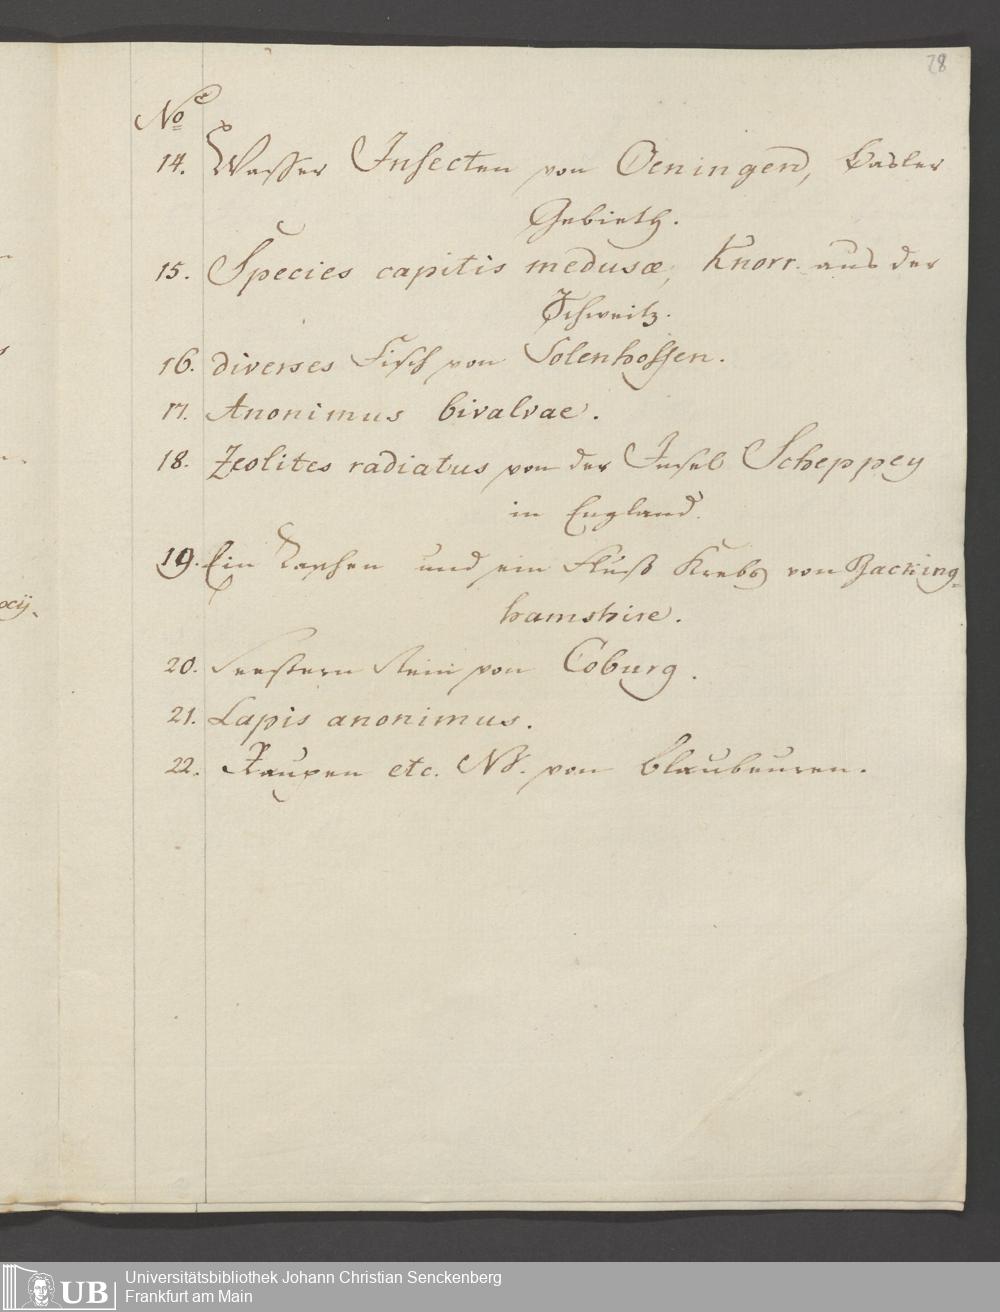 28
No
14. Wasser Insecten von Oeningen, Basler
Gebieth.
15. Species capitis medusæ, Knorr. aus der
Schweitz.
16. diverses Fisch von Solenhossen.
17. Anonimus bivalvae.
18. Zeolites radiatus von der Insel Scheppey
in England.
19. Ein und ein Fluß Krebs von Backing-
hamshire.
20. Seestern Stein von Coburg.
21. Lapis anonimus.
22. Raupen etc. NB. von Blaubeuren.
UB
Universitätsbibliothek Johann Christian Senckenberg
Frankfurt am Main